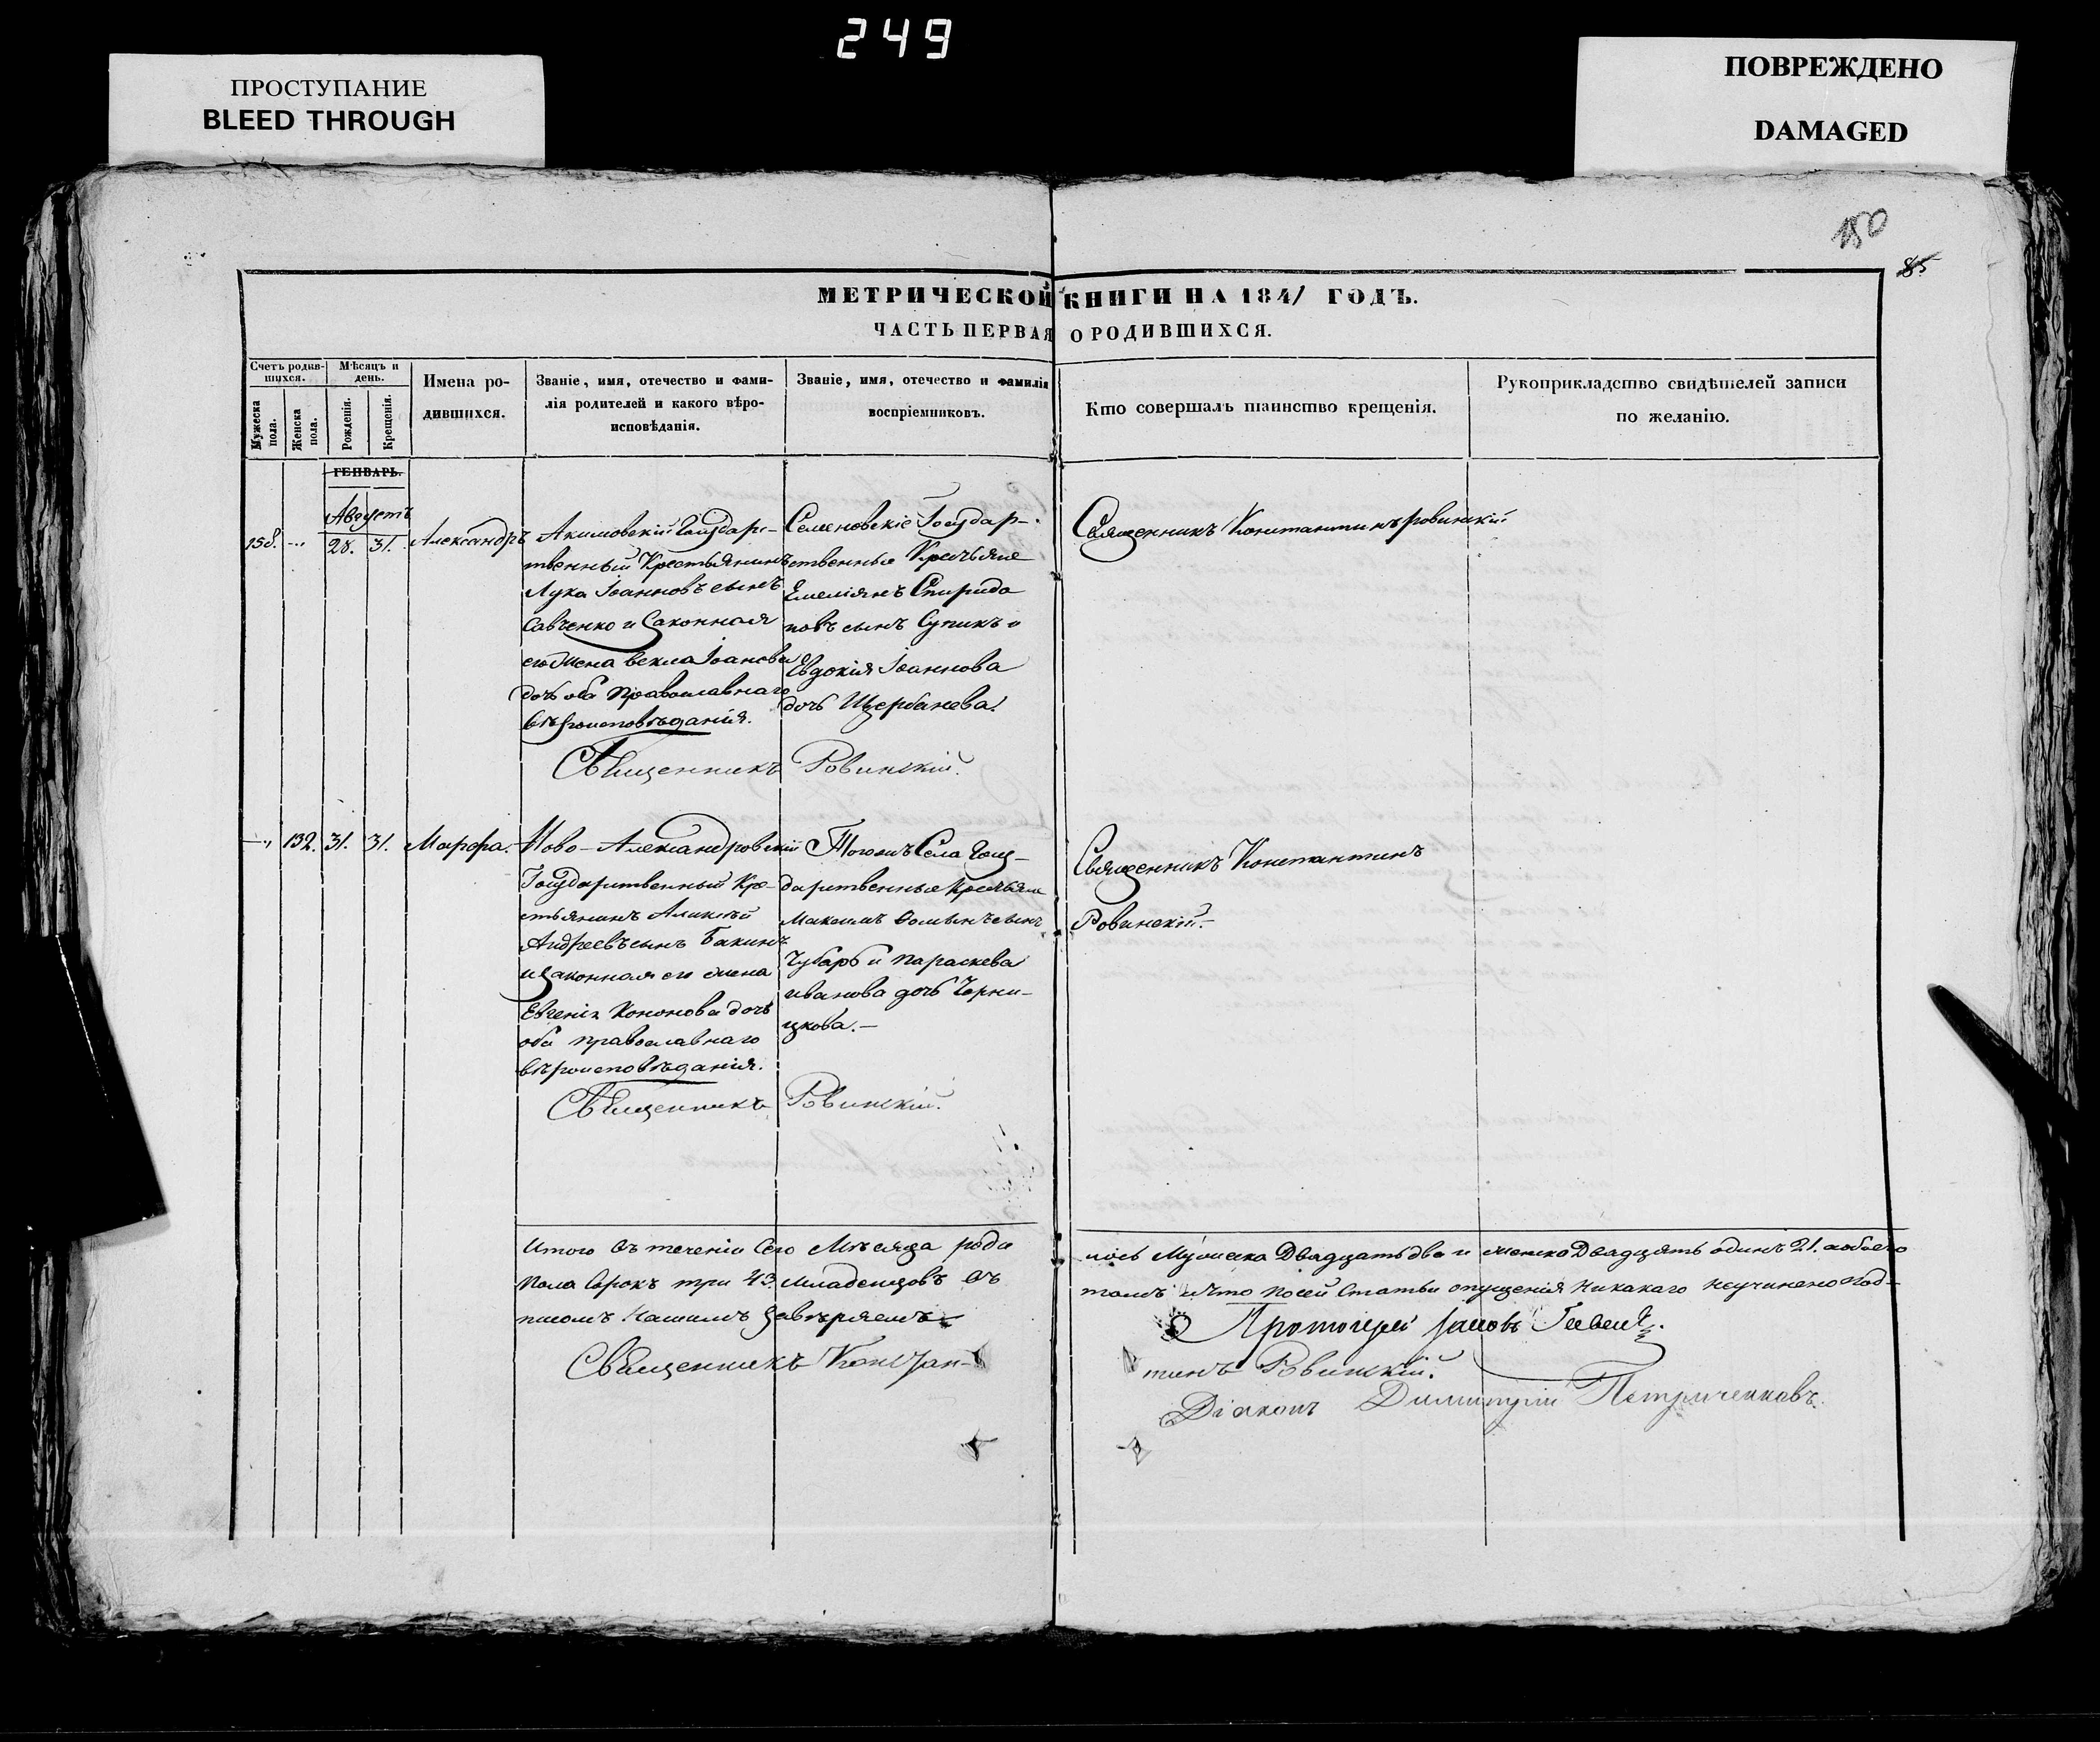 249
ПРОСТУПАНИЕ
BLEED THROUGH
ПОВРЕЖДЕНО
DAMAGED
150
85
МЕТРИЧЕСКОЙ КНИГИ НА 1841 ГОДЪ.
ЧАСТЬ ПЕРВАЯ О РОДИВШИХСЯ.
Счетъ родив-
шихся.
Мѣсяцъ и
день.
Мужеска
пола.
Женска
пола.
Рожденія.
Крещенія.
Имена ро-
дившихся.
Званіе, имя, отечество и фами-
лія родителей и какого вѣро-
исповѣданія.
Званіе, имя, отечество и фамилія
воспріемниковъ.
Кто совершалъ таинство крещенія.
Рукоприкладство свидѣтелей записи
по желанію.
ГЕНВАРЬ.
Августъ
158. 28. 31. Александръ
Акимовскій Государс-
твенный Крестьянинъ
Лука Іоанновъ сынъ
Савченко и Законная
его жена Ѳекла Іоанова
дочь оба Православнаго
вѣроисповѣданія.
Семеновскіе Государ-
ственные Крестьяне
Емеліянъ Спиридо
новъ сынъ Супикъ и
Евдокія Іоаннова
дочь Щербинева.
Священникъ Константинъ Ровинскій
Священникъ Ровинскій.
132. 31. 31. Марфа.
Ново-Александровскій
Государственный Кре-
стьянинъ Аликсѣй
Андреевъ сынъ Бакинъ
и законная его жена
Евгенія Кононова дочь
оба православнаго
вѣроисповѣданія.
Тогожъ Села Госу-
дарственные Крестьяне
Максимъ Ѳоминъ сынъ
Чубарь и Параскева
иванова дочь Черни-
цкова.-
Священникъ Константинъ
Ровинскій.-
Священникъ Ровинскій.
Итого въ теченіи Сего Мѣсяца роди
лось Мужеска Двадцать два и женска Двадцять одинъ 21. а обоего
Пола Сорокъ три 43. Младенцовъ въ
томъ и что по сей Статьи опущенія Никакаго неучинено Под-
писомъ Нашимъ завѣряемъ
Протоіерей Іаковъ
Священникъ Констан-
тинъ Ровинскій.
Діаконъ Димитрій Петриченковъ.